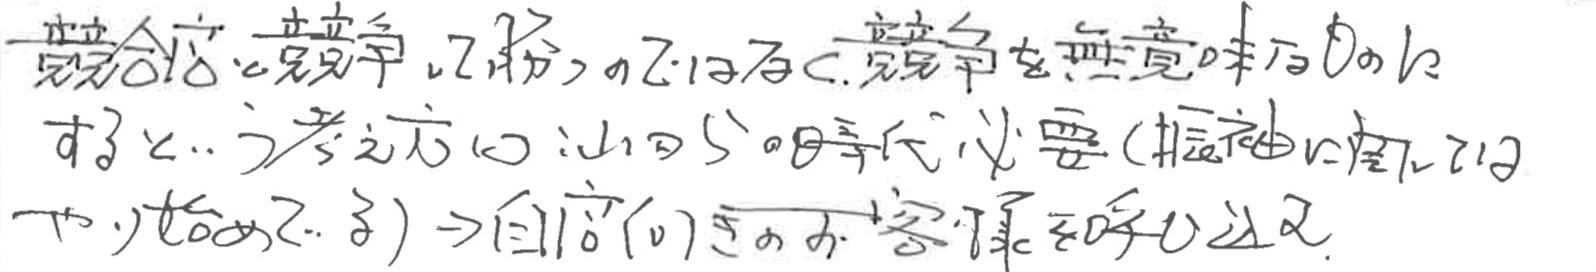 競合店と競争して勝つのではなく、競争を無意味なものに
するという考え方はこれからの時代必要(振袖に関しては
やり始めている)→自店のきのお客様を呼び込む.